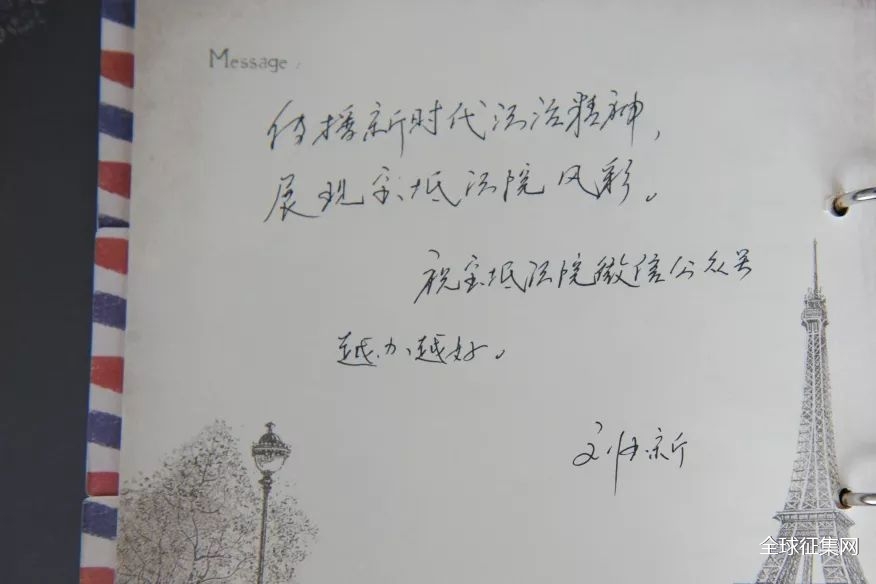 Message:
传播新时代法治精神，
展现宝坻法院风彩。
祝宝坻法院微信公众号
越办越好。
新
全球征集网